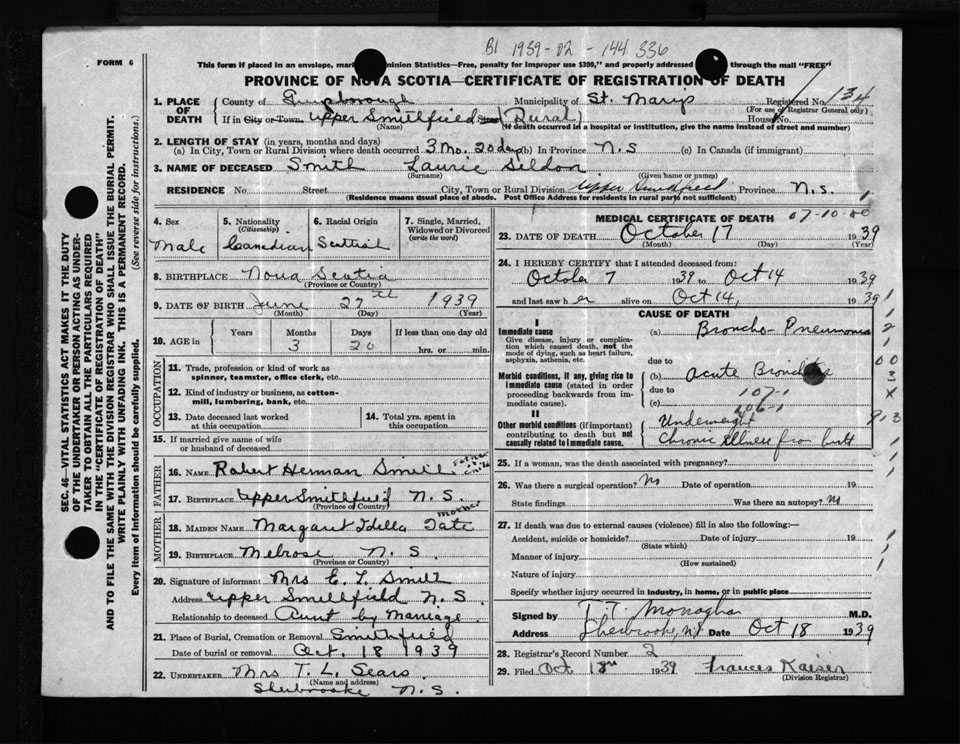 B1 1939-02-144 336
FORM 6
This form if placed in an envelope, mar Dominion Statistics—Free, penalty for improper use $300," and properly addressed through the mail "FREE"
PROVINCE OF NOVA SCOTIA—CERTIFICATE OF REGISTRATION OF DEATH
1. PLACE OF DEATH
County of Guysborough Municipality of St. Marys Registered No. 134
(For use of Registrar General only)
If in City or Town Upper Smithfield Street (Rural) House No.
(Name) (If death occurred in a hospital or institution, give the name instead of street and number)
2. LENGTH OF STAY (in years, months and days)
(a) In City, Town or Rural Division where death occurred 3 Mo. 20 days (b) In Province N.S (c) In Canada (if immigrant)
3. NAME OF DECEASED Smith Laurie
(Surname) (Given name or names)
RESIDENCE No. Street City, Town or Rural Division Upper Smithfield Province N.S.
(Residence means usual place of abode. Post Office Address for residents in rural parts not sufficient)
4. Sex
Male
5. Nationality
(Citizenship)
Canadian
6. Racial Origin
Scottish
7. Single, Married, Widowed or Divorced
(write the word)
8. BIRTHPLACE Nova Scotia
(Province or Country)
9. DATE OF BIRTH June 27th 1939
(Month) (Day) (Year)
10. AGE in
Years Months Days If less than one day old
3 20 hrs. or min.
OCCUPATION
11. Trade, profession or kind of work as
spinner, teamster, office clerk, etc.
12. Kind of industry or business, as cotton-
mill, lumbering, bank, etc.
13. Date deceased last worked
at this occupation
14. Total yrs. spent in
this occupation
15. If married give name of wife
or husband of deceased
FATHER
16. NAME Robert Herman Smith Father of child
17. BIRTHPLACE Upper Smithfield N.S.
(Province or Country)
MOTHER
18. MAIDEN NAME Margaret Idella Tate mother
19. BIRTHPLACE Melrose N.S.
(Province or Country)
20. Signature of informant Mrs E. L. Smith
Address Upper Smithfield N.S.
Relationship to deceased Aunt by Marriage
21. Place of Burial, Cremation or Removal Smithfield
Date of burial or removal Oct. 18 1939
22. UNDERTAKER Mrs T. L. Sears
(Name and address)
Sherbrooke N.S.
MEDICAL CERTIFICATE OF DEATH
23. DATE OF DEATH October 17 1939
(Month) (Day) (Year)
24. I HEREBY CERTIFY that I attended deceased from:
October 7 1939 to Oct 14 1939
and last saw her alive on Oct 14, 1939
CAUSE OF DEATH
I
Immediate cause
Give disease, injury or complica-
tion which caused death, not the
mode of dying, such as heart failure,
asphyxia, asthenia, etc.
(a) Broncho-Pneumonia
due to
Morbid conditions, if any, giving rise to
immediate cause (stated in order
proceeding backwards from im-
mediate cause).
(b) Acute Bronchitis
due to
107-1
(c)
II
Other morbid conditions (if important)
contributing to death but not
causally related to immediate cause.
Underweight
Chronic illness from birth
25. If a woman, was the death associated with pregnancy?
26. Was there a surgical operation? No Date of operation 19
State findings Was there an autopsy? No
27. If death was due to external causes (violence) fill in also the following:—
Accident, suicide or homicide? Date of injury 19
(State which)
Manner of injury
(How sustained)
Nature of injury
Specify whether injury occurred in industry, in home, or in public place
Signed by T. T. Monaghan M.D.
Address Sherbrooke, N.S. Date Oct 18 1939
28. Registrar's Record Number 2
29. Filed Oct 18th 1939 Frances Kaiser
(Division Registrar)
SEC. 46—VITAL STATISTICS ACT MAKES IT THE DUTY
OF THE UNDERTAKER OR PERSON ACTING AS UNDER-
TAKER TO OBTAIN ALL THE PARTICULARS REQUIRED
IN THE "CERTIFICATE OF REGISTRATION OF DEATH"
AND TO FILE THE SAME WITH THE DIVISION REGISTRAR WHO SHALL ISSUE THE BURIAL PERMIT.
WRITE PLAINLY WITH UNFADING INK. THIS IS A PERMANENT RECORD.
Every item of information should be carefully supplied. (See reverse side for instructions.)